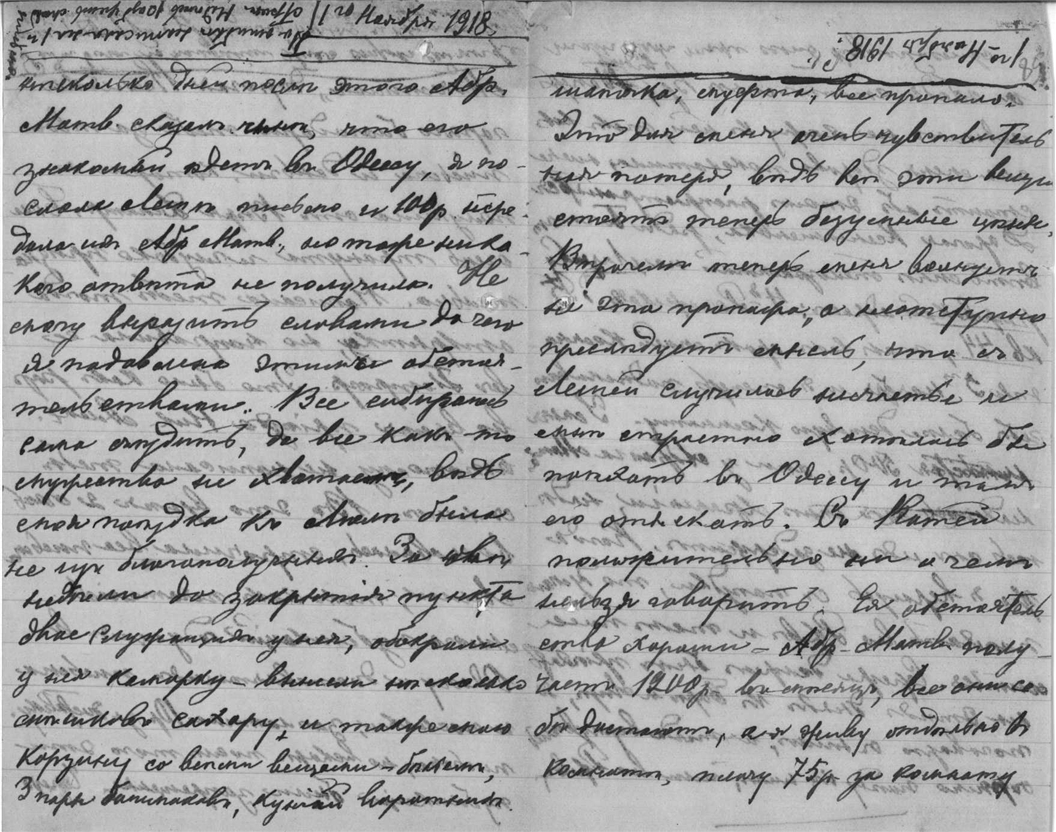 1го Ноября 1918
нѣсколько дней послѣ этого Абр.
Матв. сказалъ что его
знакомый ѣдетъ въ Одессу, я по-
слала письмо и 100р. пере-
дала Абр. Матв., но тоже ника-
кого отвѣта не получила. Не
могу выразить словами до чего
я подавлена этими обстоя-
тельствами. Все собиралась
сама съѣздить, да все какъ то
мужества не хватаетъ, вѣдь
моя поѣздка къ была
не изъ благополучныхъ. За
недѣли до закрытія пункта
двое служащихъ у нея, обокрали
у нея каморку - вынесли нѣсколько
мѣшковъ сахару, и также мою
корзину со всѣми вещами - бѣльемъ,
3 пары башмаковъ, воротникъ
1го Ноября 1918 г.
шапочка, муфта, все пропало.
Это для меня очень чувствитель
ная потеря, вѣдь всѣ эти вещи
стоятъ теперь безумныя цѣны.
Впрочемъ теперь меня волнуетъ
не эта пропажа, а неотступно
преслѣдуетъ мысль, что съ
Леней случилось несчастье и
мнѣ страстно хотѣлось бы
поѣхать въ Одессу и тамъ
его отыскать. Съ Катей
положительно ни о чемъ
нельзя говорить. Ея обстоятель
ства хороши - Абр. Матв. полу-
чаетъ 1200р. въ мѣсяцъ, все они се-
бѣ достаютъ, а я живу отдѣльно въ
комнатѣ, плачу 75р. за комнату